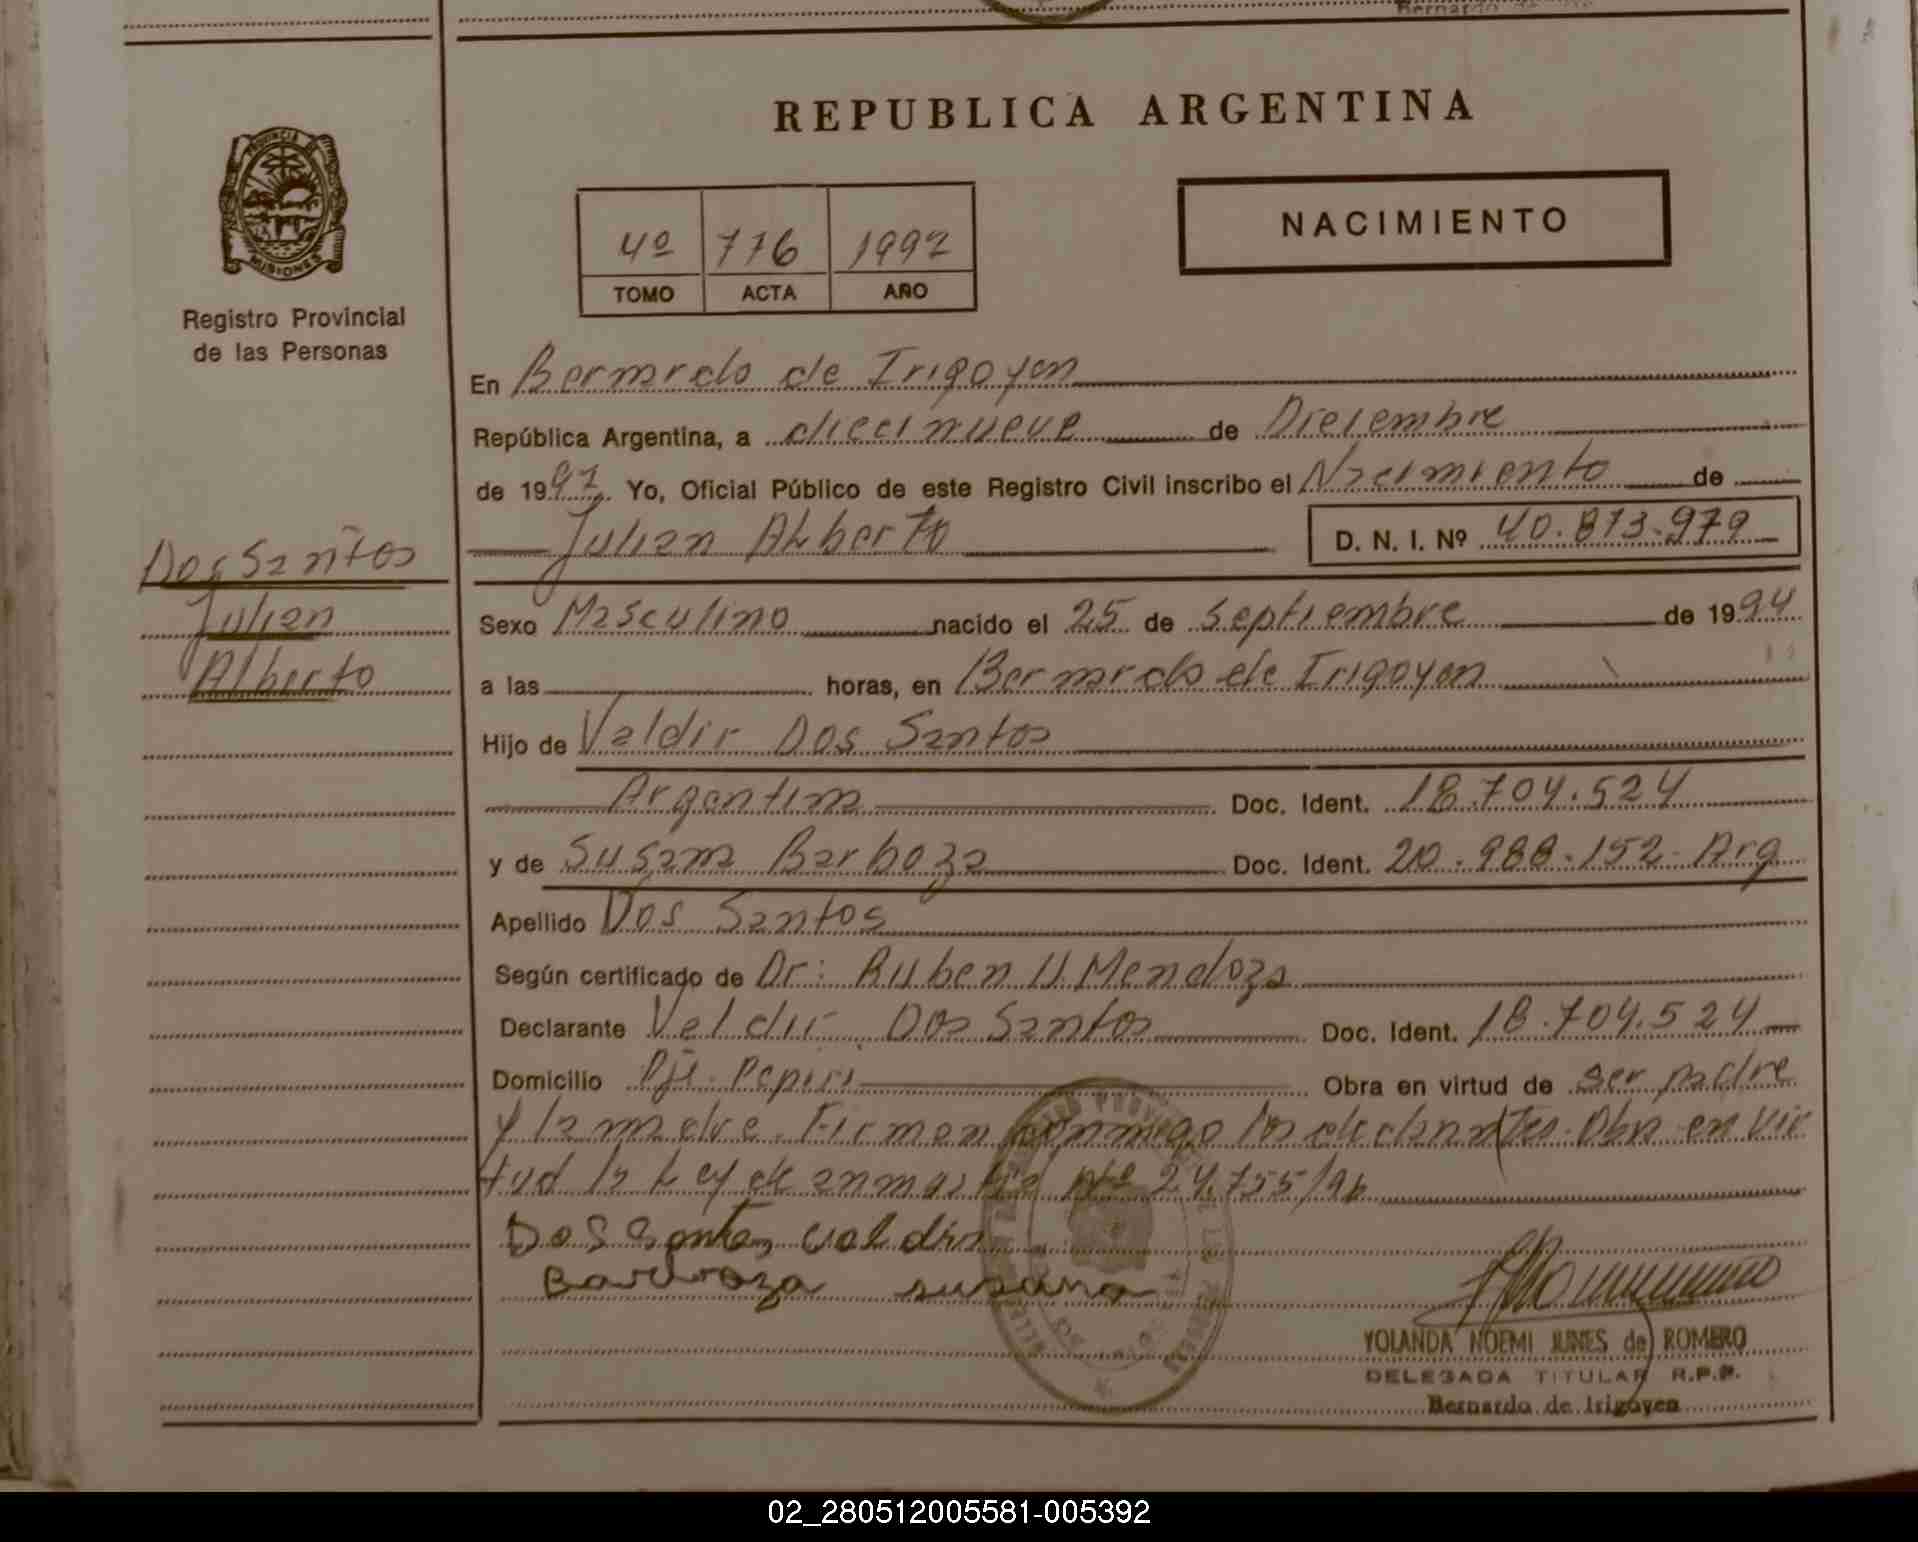 Bernardo de
REPUBLICA ARGENTINA
PROVINCIA DE
MISIONES
Registro Provincial
de las Personas
4º 776 1997
TOMO ACTA AÑO
NACIMIENTO
En Bernardo de Irigoyen
República Argentina, a diecinueve de Diciembre
de 1997. Yo, Oficial Público de este Registro Civil inscribo el Nacimiento de
Julian Alberto
D. N. I. Nº 40.873.979
Dos Santos
Julian
Alberto
Sexo Masculino nacido el 25 de Septiembre de 1994
a las horas, en Bernardo de Irigoyen
Hijo de Valdir Dos Santos
Argentina Doc. Ident. 18.704.524
y de Susana Barboza Doc. Ident. 20.988.152-Arg
Apellido Dos Santos
Según certificado de Dr: Ruben U. Mendoza
Declarante Valdir Dos Santos Doc. Ident. 18.704.524
Domicilio Pje. Pepiri Obra en virtud de ser padre
y la madre. Firman conmigo los declarantes. Obra en vir
tud la Ley de amnistia Nº 24.755/96
Dos Santos Valdir
Barboza susana
YOLANDA NOEMI JUNES de ROMERO
DELEGADA TITULAR R.P.P.
Bernardo de Irigoyen
02_280512005581-005392